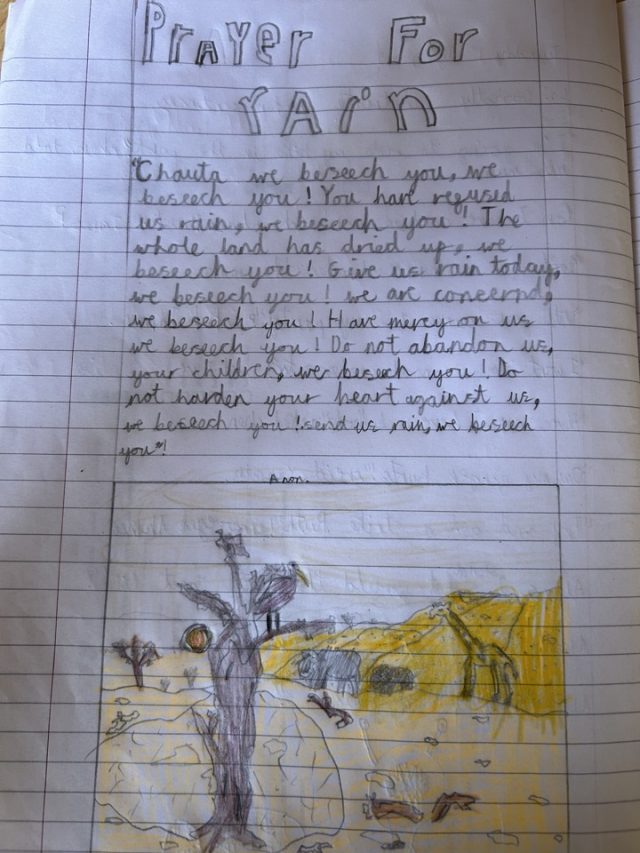 PrAyer For
rAin
"Chauta we beseech you, we
beseech you! You have refused
us rain, we beseech you! The
whole land has dried up, we
beseech you! Give us rain today,
we beseech you! we are concernd,
we beseech you! Have mercy on us
we beseech you! Do not abandon us,
your children, we beseech you! Do
not harden your heart against us,
we beseech you! send us rain, we beseech
you"!
Anon.